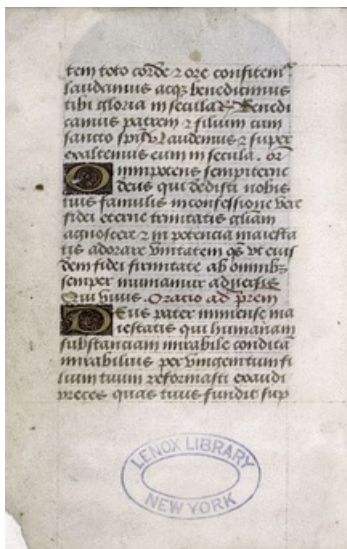 tem toto corde ⁊ ore confitemʳ
laudamus acqꝫ benedicimus
tibi gloria in secula ℟ Benedi
camus patrem ⁊ filium cum
sancto spũ ℣ laudemus ⁊ super
exaltemus eum in secula. or̄
Omnipotens sempiterne
deus qui dedisti nobis
tuis famulis in confessione vere
fidei eterne trinitatis gliam
agnoscere ⁊ in potencia maiesta
tis adorare vnitatem qs̄ vt eius
dem fidei firmitate ab omnibꝫ
semper muniamur aduersis
Qui viuis. Oracio ad p̄rem
Deus pater inmense ma
iestatis qui humanam
substanciam mirabile conditā
mirabilius per vnigenitum fi
lium tuum reformasti exaudi
preces quas tuus fundit sup
LENOX LIBRARY
NEW YORK